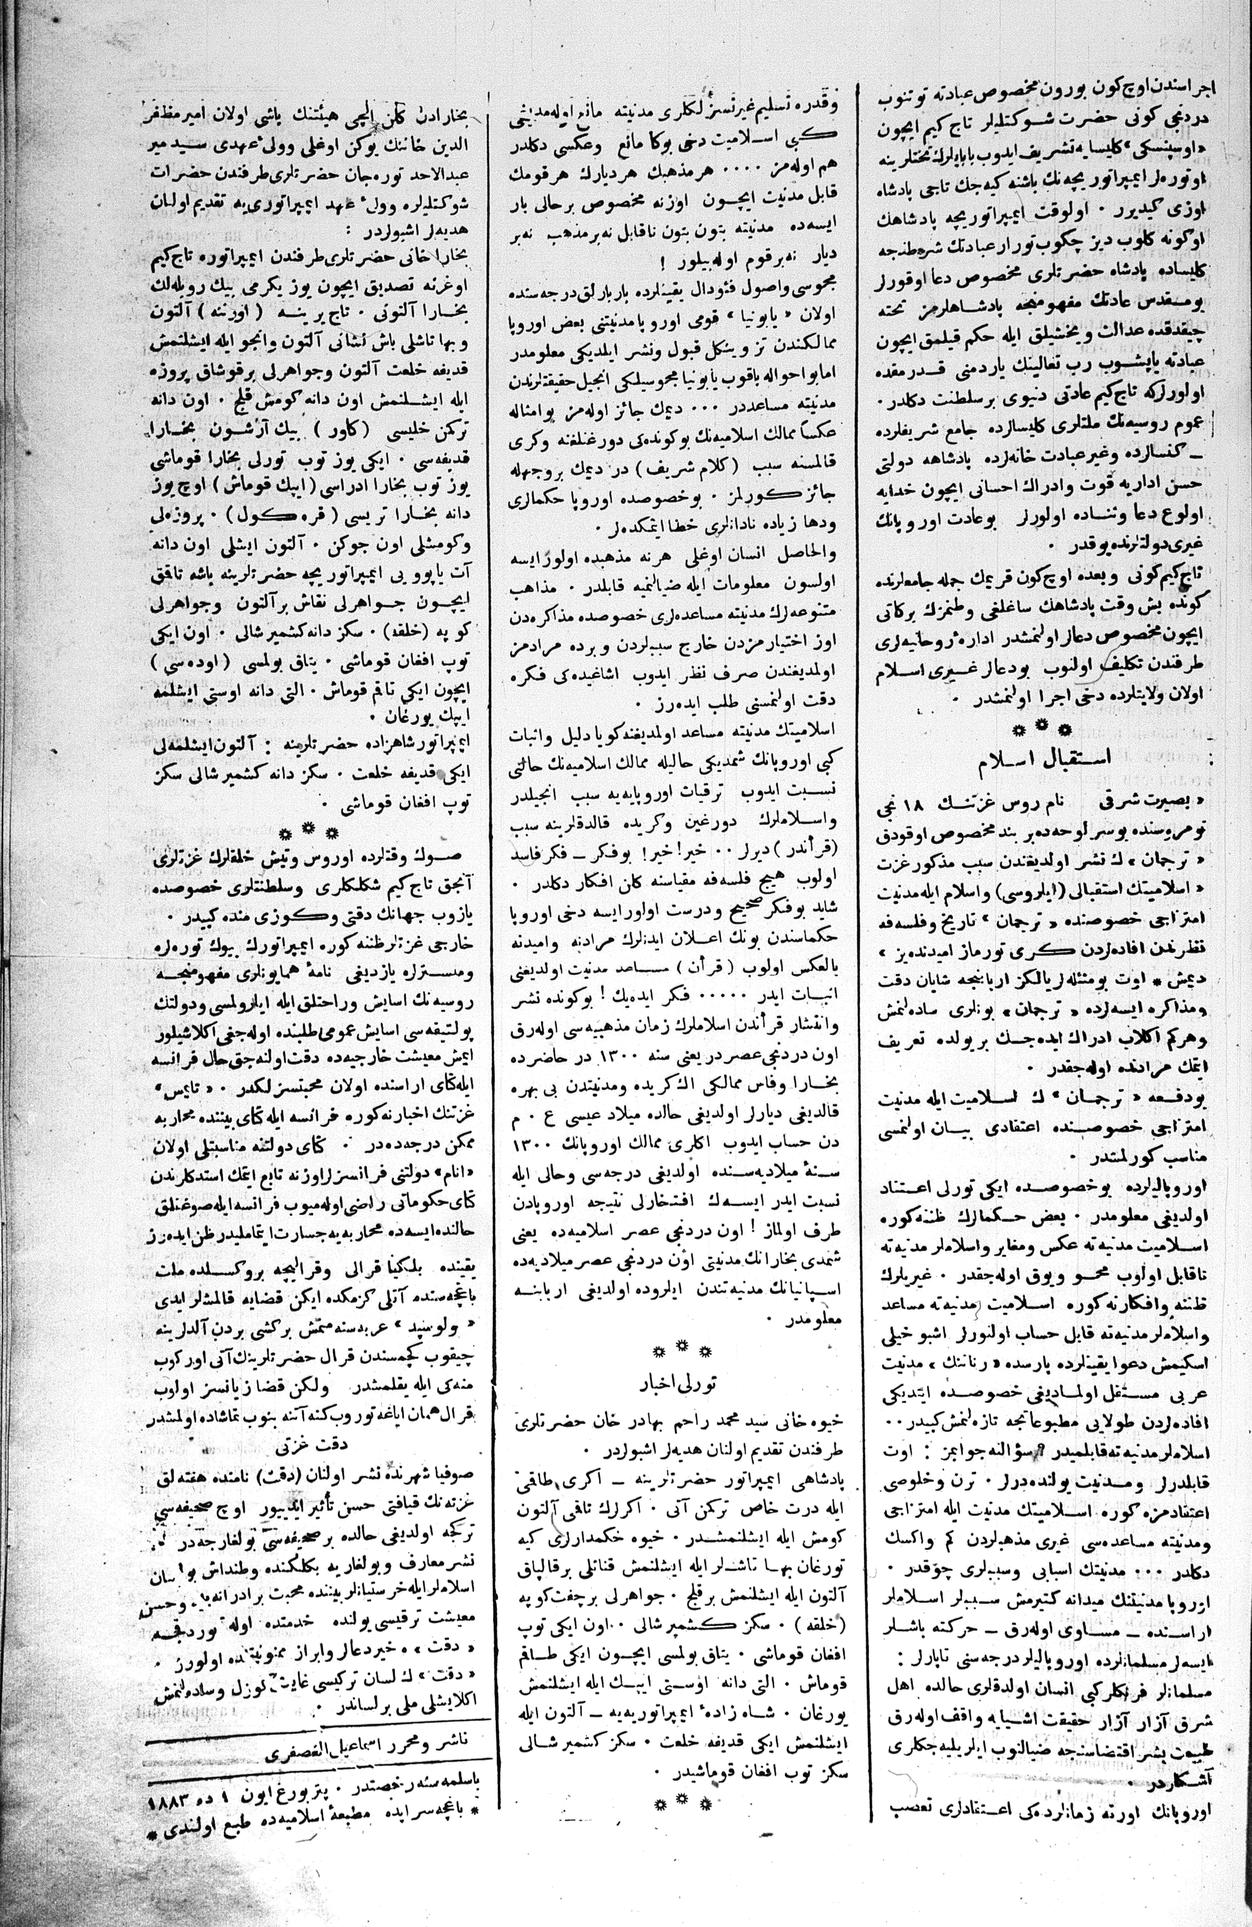 اجراسندن اوچ كون بورون مخصوص عبادته توتنوب
دردنجی كونی حضرت شوكتلیلر تاج كیم ایچون
«اوسپنسكی» كلیسایه تشریف ایدوب بابالرك تختلرینه
اوتوره‌لر ایمپراتوریچه‌نك باشنه كیه‌جك تاجی پادشاه
اوزی كیدیرر ٠ اولوقت ایمپراتوریچه پادشاهك
اوكونه كلوب دیز چكوب تورار عبادتك شره‌طنجه
كلیساده پادشاه حضرتلری مخصوص دعا اوقورلر
بو مقدس عادتك مفهومنجه پادشاهلرمز تخته
چیقدقده عدالت و یخشیلق ایله حكم قیلمق ایچون
عبادته یاپشوب رب تعالینك یاردمنی قدرمقده
اولورلركه تاج كیم عادتی دنیوی بر سلطنت دكلدر ٠
عموم روسیه‌نك ملتلری كلیسالرده جامع شریفلرده
ــ كنسالرده وغیر عبادت خانه‌لرده پادشاهه دولتی
حسن اداریه قوت وادراك احسانی ایچون خدایه
اولوغ دعا وثناده اولورلر بوعادت اوروپانك
غیری دولتلرنده یوقدر ٠
تاج كیم كونی وبعده اوچ كون قریمك جمله جامعلرنده
كونده بش وقت پادشاهك ساغلغی وطنمزك بركاتی
ایچون مخصوص دعالر اولنمشدر ادارهٔ روحانیه‌لری
طرفندن تكلیف اولنوب بودعالر غیری اسلام
اولان ولایتلرده دخی اجرا اولنمشدر ٠
استقبال اسلام
«بصیرت شرقی نام روس غزتنك ١٨ نجی
نومروسنده بوسرلوحه‌ده بر بند مخصوص اوقودق
«ترجمان» ك نشر اولدیغندن سبب مذكور غزت
«اسلامیتك استقبالی (ایلروسی) واسلام ایله مدنیت
امتزاجی خصوصنده «ترجمان» تاریخ وفلسفه
نقطرندن افاده‌لردن كری تورماز امیدنده‌یز»
دیمش * اوت بومثللر یالكز اربابنجه شایان دقت
ومذاكره ایسه‌لرده «ترجمان» بونلری ساده‌لنمش
وهركم اكلاب ادراك ایده‌جك بر یولده تعریف
ایتمك مرادنده اوله‌جقدر ٠
بودفعه «ترجمان» ك اسلامیت ایله مدنیت
امتزاجی خصوصنده اعتقادی بیان اولنمسی
مناسب كورلمشدر ٠
اوروپالیلرده بوخصوصده ایكی تورلی اعتقاد
اولدیغی معلومدر ٠ بعض حكمالرك ظننه كوره
اسلامیت مدنیه‌ته عكس ومغایر واسلاملر مدنیه‌ته
ناقابل اولوب محو ویوق اوله‌جقدر ٠ غیریلرك
ظننه وافكارنه كوره اسلامیت مدنیه‌ته مساعد
واسلاملر مدنیه‌ته قابل حساب اولنورلر اشبو خیلی
اسكیمش دعوا یقینلرده پارسده «رناننك» مدنیت
عربی مستقل اولمادیغی خصوصده ایتدیكی
افاده‌لردن طولایی مطبوعاتجه تازه‌لنمش كبیدر ٠٠
اسلاملر مدنیه‌ته قابلمیدر؟ سؤالنه جوابمز : اوت
قابلدرلر ومدنیت یولنده‌درلر ٠ ترن وخلوصی
اعتقادمزه كوره اسلامیتك مدنیت ایله امتزاجی
ومدنیته مساعده‌سی غیری مذهبلردن كم واكسك
دكلدر ٠٠٠ مدنیتك اسبابی وسببلری چوقدر ٠
اوروپا مدنیتنك میدانه كتیرمش سببلر اسلاملر
اراسنده ــ مساوی اوله‌رق ــ حركته باشلر
ایسه‌لر مسلمانلرده اوروپالیلر درجه‌سنی تاپارلر :
مسلمانلر فرنكلر كبی انسان اولدقلری حالده اهل
شرق آزار آزار حقیقت اشیایه واقف اوله‌رق
طبیعت بشر اقتضاسنجه ضیالنوب ایلریلیه‌جكلری
آشكاردر ٠
اوروپانك اورته زمانلرده‌كی اعتقاداری تعصب
وقدره تسلیم غیرتسزلكلری مدنیته مانع اوله‌مدیغی
كبی اسلامیت دخی بوكا مانع وعكسی دكلدر
هم اوله‌مز ٠٠٠٠ هر مذهبك هر دیارك هر قومك
قابل مدنیت ایچون اوزنه مخصوص بر حالی بار
ایسه‌ده مدنیته بتون بتون ناقابل نه‌بر مذهب نه‌بر
دیار نه‌بر قوم اوله‌بیلور !
مجوسی واصول فئودال یقینلرده باربارلق درجه‌سنده
اولان «یاپونیا» قومی اوروپا مدنیتنی بعض اوروپا
ممالكندن تز وینكل قبول ونشر ایلدیكی معلومدر
اما بو احواله باقوب یاپونیا مجوسیلكی انجیل حقیقتلرندن
مدنیته مساعددر ٠٠٠ دیمك جائز اوله‌مز بو امثاله
عكساً ممالك اسلامیه‌نك بوكونده‌كی دورغنلغنه وكری
قالمسنه سبب (كلام شریف) در دیمك بر وجهله
جائز كورلمز ٠ بوخصوصده اوروپا حكمالری
ودها زیاده نادانلری خطا ایتمكده‌لر ٠
والحاصل انسان اوغلی هر نه مذهبده اولور ایسه
اولسون معلومات ایله ضیالنمیه قابلدر ٠ مذاهب
متنوعه‌لرك مدنیته مساعده‌لری خصوصده مذاكره‌دن
اوز اختیارمزدن خارج سببلردن وبرده مرادمز
اولمدیغندن صرف نظر ایدوب اشاغیده‌كی فكره
دقت اولنمسنی طلب ایده‌رز ٠
اسلامیتك مدنیته مساعد اولمدیغنه كویا دلیل واثبات
كبی اوروپانك شمدیكی حالیله ممالك اسلامیه‌نك حالتی
نسبت ایدوب ترقیات اوروپایه‌یه سبب انجیلدر
واسلاملرك دورغین وكریده قالدقلرینه سبب
(قرأندر) دیرلر ٠٠ خیر! خیر! بوفكر ــ فكر فاسد
اولوب هیچ فلسفه مقیاسنه كان افكار دكلدر ٠
شاید بوفكر صحیح ودرست اولور ایسه دخی اوروپا
حكماسندن بونك اعلان ایدنلرك مرادنه وامیدنه
بالعكس اولوب (قرأن) مساعد مدنیت اولدیغی
اثبات ایدر ٠٠٠٠٠ فكر ایده‌یك! بوكونده نشر
وانتشار قرأندن اسلاملرك زمان مذهبیه‌سی اوله‌رق
اون دردنجی عصردر یعنی سنه ١٣٠٠ در حاضرده
بخارا وفاس ممالكی اك كریده ومدنیتدن بی بهره
قالدیغی دیارلر اولدیغی حالده میلاد عیسی ع ٠ م
دن حساب ایدوب اكلری ممالك اوروپانك ١٣٠٠
سنهٔ میلادیه‌سنده اولدیغی درجه‌سی وحالی ایله
نسبت ایدر ایسه‌ك افتخارلی نتیجه اوروپادن
طرف اولماز! اون دردنجی عصر اسلامیه‌ده یعنی
شمدی بخارانك مدنیتی اون دردنجی عصر میلادیه‌ده
اسپانیانك مدنیه‌تندن ایلروده اولدیغی اربابنه
معلومدر ٠
تورلی اخبار
خیوه خانی سید محمد راحم بهادر خان حضرتلری
طرفندن تقدیم اولنان هدیه‌لر اشبولردر ٠
پادشاهی ایمپراتور حضرتلرینه ــ اكری طاقی
ایله درت خاص تركمن آتی ٠ اكرلرك تاقمی آلتون
كومش ایله ایشلنمشدر ٠ خیوه حكمدارلری كیه
تورغان بها تاشلر ایله ایشلنمش قنانلی بر قالپاق
آلتون ایله ایشلنمش بر قلیج ٠ جواهرلی بر جفت كوپه
(خلقه) ٠ سكز كشمیر شالی ٠٠ اون ایكی توپ
افغان قوماشی ٠ یتاق بولمسی ایچون ایكی طاقم
قوماش ٠ التی دانه اوستی ایپك ایله ایشلنمش
یورغان ٠ شاه زادهٔ ایمپراتوریه‌یه ــ آلتون ایله
ایشلنمش ایكی قدیفه خلعت ٠ سكز كشمیر شالی
سكز توب افغان قوماشیدر ٠
بخارادن كلن ایلچی هیئتنك باشی اولان امیر مظفر
الدین خاننك بوكن اوغلی وولی عهدی سید میر
عبدالاحد توره‌جان حضرتلری طرفندن حضرات
شوكتلیلره وولیٔ عهد ایمپراتوری‌یه تقدیم اولنان
هدیه‌لر اشبولردر :
بخارا خانی حضرتلری طرفندن ایمپراتوره تاج كیم
اوغرنه تصدیق ایچون یوز یكرمی بیك روبله‌لك
بخارا آلتونی ٠ تاج یرینه (اورننه) آلتون
وبها تاشلی باش نشانی آلتون وانجو ایله ایشلنمش
قدیفه خلعت آلتون وجواهرلی بر قوشاق پروزه
ایله ایشلنمش اون دانه كومش قلیج ٠ اون دانه
تركن خلیسی (كاور) بیك آرشون بخارا
قدیفه‌سی ٠ ایكی یوز توب تورلی بخارا قوماشی
یوز توب بخارا ادراسی (ایپك قوماش) اوچ یوز
دانه بخارا تریسی (قره كول) ٠ پروزه‌لی
وكومشلی اون جوكن ٠ آلتون ایشلی اون دانه
آت یاپووی ایمپراتوریچه حضرتلرینه باشه تاقق
ایچون جواهرلی نقاش بر آلتون وجواهرلی
كوپه (خلقه) ٠ سكز دانه كشمیر شالی ٠ اون ایكی
توپ افغان قوماشی ٠ یتاق بولمسی (اوده‌سی)
ایچون ایكی تاقم قوماش ٠ التی دانه اوستی ایشلمه
ایپك یورغان ٠
ایمپراتور شاهزاده حضرتلرینه : آلتون ایشلمه‌لی
ایكی قدیفه خلعت ٠ سكز دانه كشمیر شالی سكز
توپ افغان قوماشی ٠
صوك وقتلرده اوروس وتیش خلقلرك غزتلری
آنجق تاج كیم شكلكلری وسلطنتلری خصوصده
یازوب جهانك دقتی وكوزی منده كبیدر ٠
خارجی غزتلر ظننه كوره ایمپراتورك بیوك توره‌لره
ومسترلره یازدیغی نامهٔ همایونلری مفهومنجه
روسیه‌نك اسایش وراحتلق ایله ایلرولمسی ودولتك
پولتیقه‌سی اسایش عمومی طلبنده اوله‌جغی اكلاشیلور
ایمش معیشت خارجیه‌ده دقت اولنه‌جق حال فرانسه
ایله كتای اراسنده اولان محبتسزلكدر ٠ «تایمس»
غزتنك اخبارنه كوره فرانسه ایله كتای بیننده محاربه
ممكن درجه‌ده‌در ٠ كتای دولتنه مناسبتلی اولان
«انام» دولتنی فرانسزلر اوزنه تابع ایتمك استدكلرندن
كتای حكوماتی راضی اوله‌میوب فرانسه ایله صوغنلق
حالنده ایسه‌ده محاربه‌یه جسارت ایتماملیدر ظن ایده‌رز
یقینده بلكیا قرالی وقرالیچه بروكسلده ملت
باغچه‌سنده آتلی كزمكده ایكن قضایه قالمشلر ایدی
«ولوسپد» عربه‌سنه منمش بر كشی بردن آلدلرینه
چیقوب كچمسندن قرال حضرتلرینك آتی اوركوب
منه‌كی ایله یقلمشدر ولكن قضا زیانسز اولوب
قرال همان ایاغه توروب كنه آتنه بنوب تماشاده اولمشدر
دقت غزتی
صوفیا شهرنده نشر اولنان (دقت) نامنده هفته‌لق
غزته‌نك قیافتی حسن تأثیر ایدییور اوچ صحیفه‌سی
تركجه اولدیغی حالده بر صحیفه‌سی بولغارجه‌در
نشر معارف وبولغاریه بكلكنده وطنداش بولسان
اسلاملر ایله خرستیانلر بیننده محبت برادرانه وحسن
معیشت ترقیسی یولنده خدمتده اوله توردقجه
«دقت» ه خیر دعالر وابراز ممنونیتده اولورز ٠
«دقت» ك لسان تركیسی غایت كوزل وساده‌لنمش
اكلایشلی ملی بر لساندر ٠
ناشر ومحرر اسماعیل الغصفری
باسلمه‌سنه رخصتدر ٠ پتربورغ ایون ١ ده ١٨٨٣
* باغچه‌سرایده مطبعهٔ اسلامیه‌ده طبع اولندی *